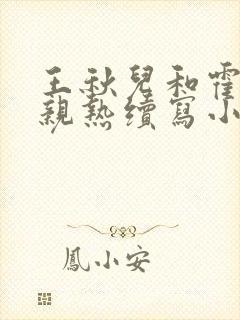 王秋兒和霍
親熱續寫小
鳳小安